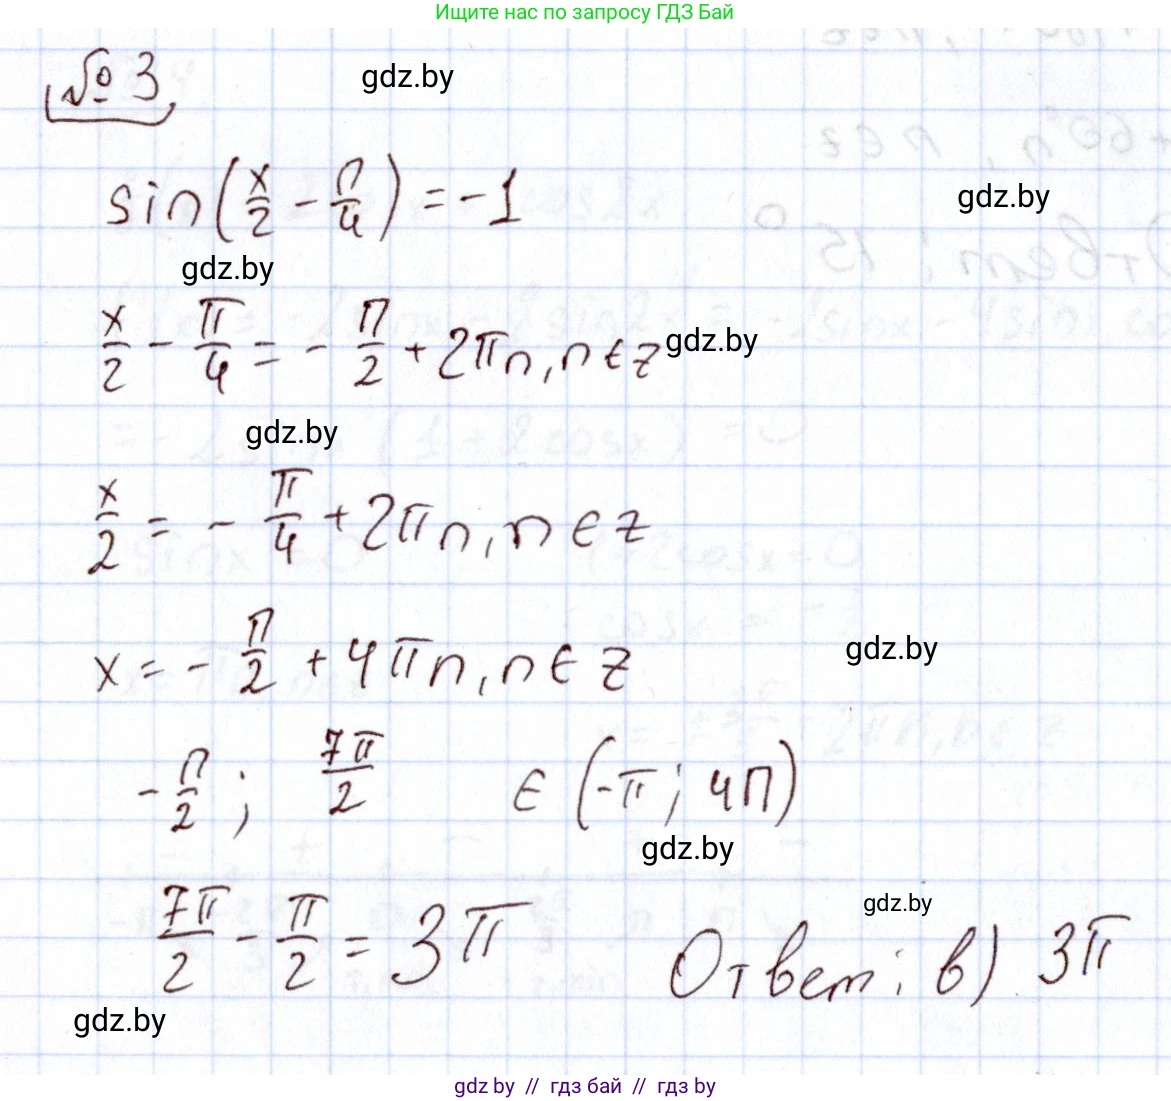 Ищите нас по запросу ГДЗ Бай
№ 3
gdz.by
sin(x/2 - π/4) = -1
gdz.by
gdz.by
x/2 - π/4 = - π/2 + 2πn, n ∈ z
gdz.by
gdz.by
x/2 = - π/4 + 2πn, n ∈ z
x = - π/2 + 4πn, n ∈ z
gdz.by
- π/2 ; 7π/2 ∈ (-π; 4π)
gdz.by
7π/2 - π/2 = 3π
gdz.by
Ответ: в) 3π
gdz.by
gdz by // гдз бай // gdz by